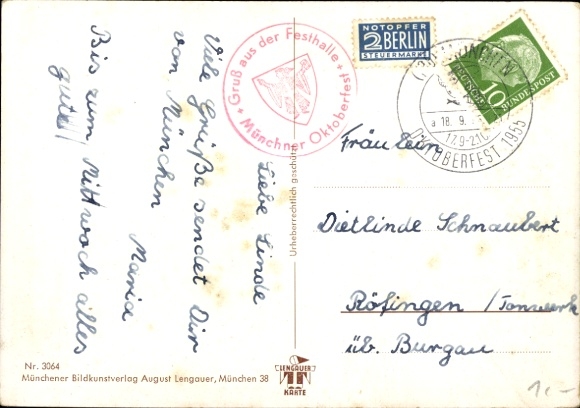 Liebe Linde
Viele Grüße sendet Dir
von München
Maria
Bis zum Mittwoch alles
gute!
Gruß aus der Festhalle
Münchner Oktoberfest
NOTOPFER
2 BERLIN
STEUERMARKE
DEUTSCHE
BUNDESPOST
10
MÜNCHEN
a 18. 9.
17.9-2.10.
OKTOBERFEST 1955
Fräulein
Dietlinde Schnaubert
Röfingen / Tonwerk
üb. Burgau
Urheberrechtlich geschützt
Nr. 3064
Münchener Bildkunstverlag August Lengauer, München 38
LENGAUER
KARTE
1,-